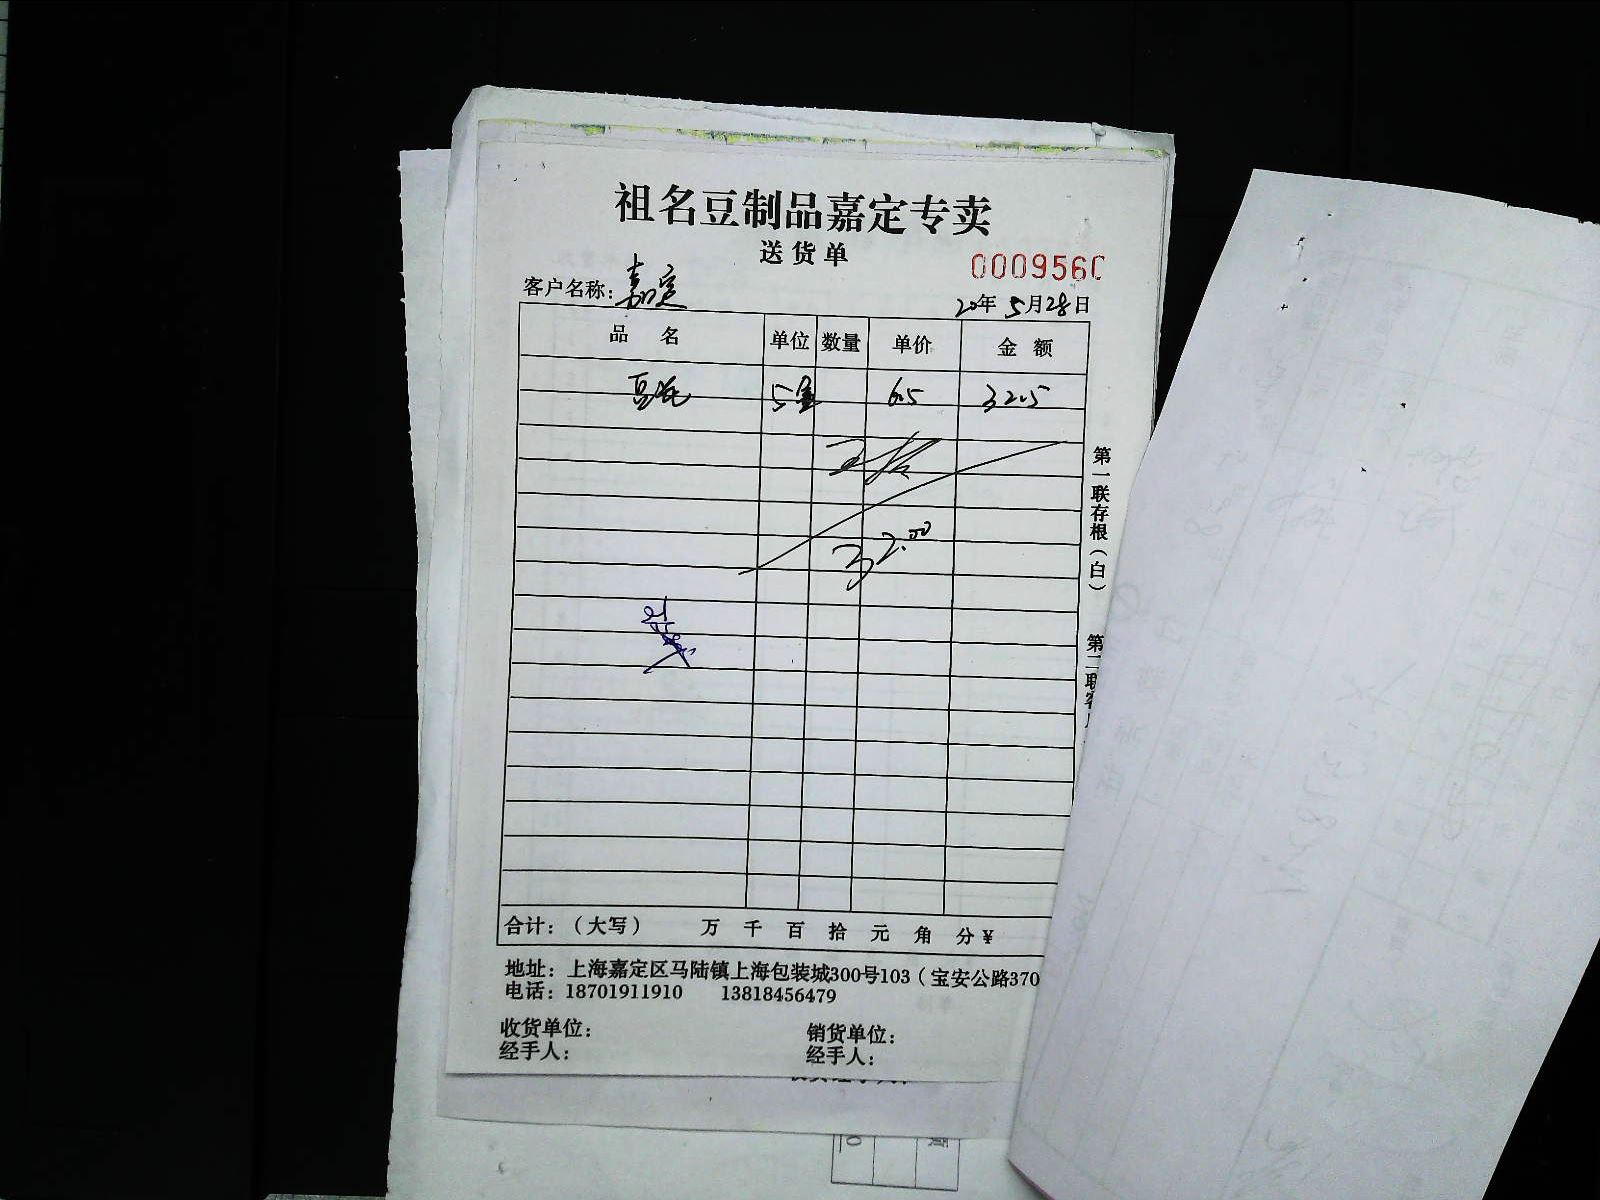 祖名豆制品嘉定专卖
送货单
000956
客户名称：嘉定
20年 5月28日
品 名 单位 数量 单价 金 额
5 6.5 32.5
32.00
第一联存根（白）
第二联客
合计：（大写） 万 千 百 拾 元 角 分 ¥
地址：上海嘉定区马陆镇上海包装城300号103（宝安公路370
电话：18701911910 13818456479
收货单位： 销货单位：
经手人： 经手人：